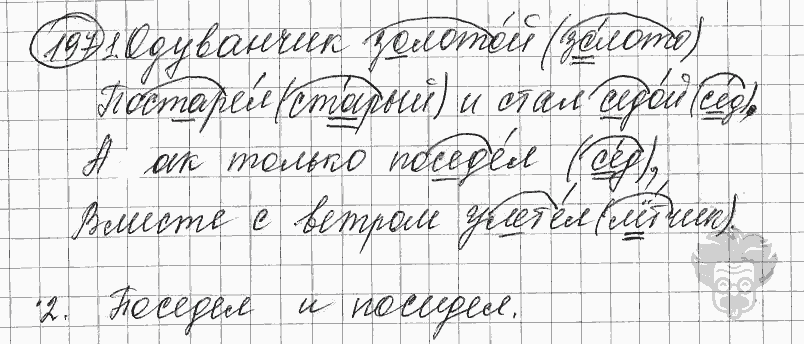 197 1. Одуванчик золото́й (зо́лото)
Постаре́л (ста́рый) и стал седо́й (се́д),
А ак только поседе́л (се́д),
Вместе с ветром улете́л (лётчик).
2. Поседел и посидел.